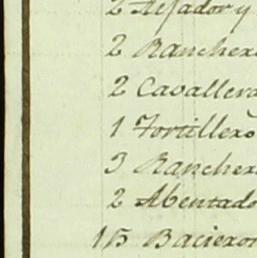 2 Aijador y
2 Ranchero
2 Cavallera
1 Tortillero
3 Ranchero
2 Abentado
15 Bacieron